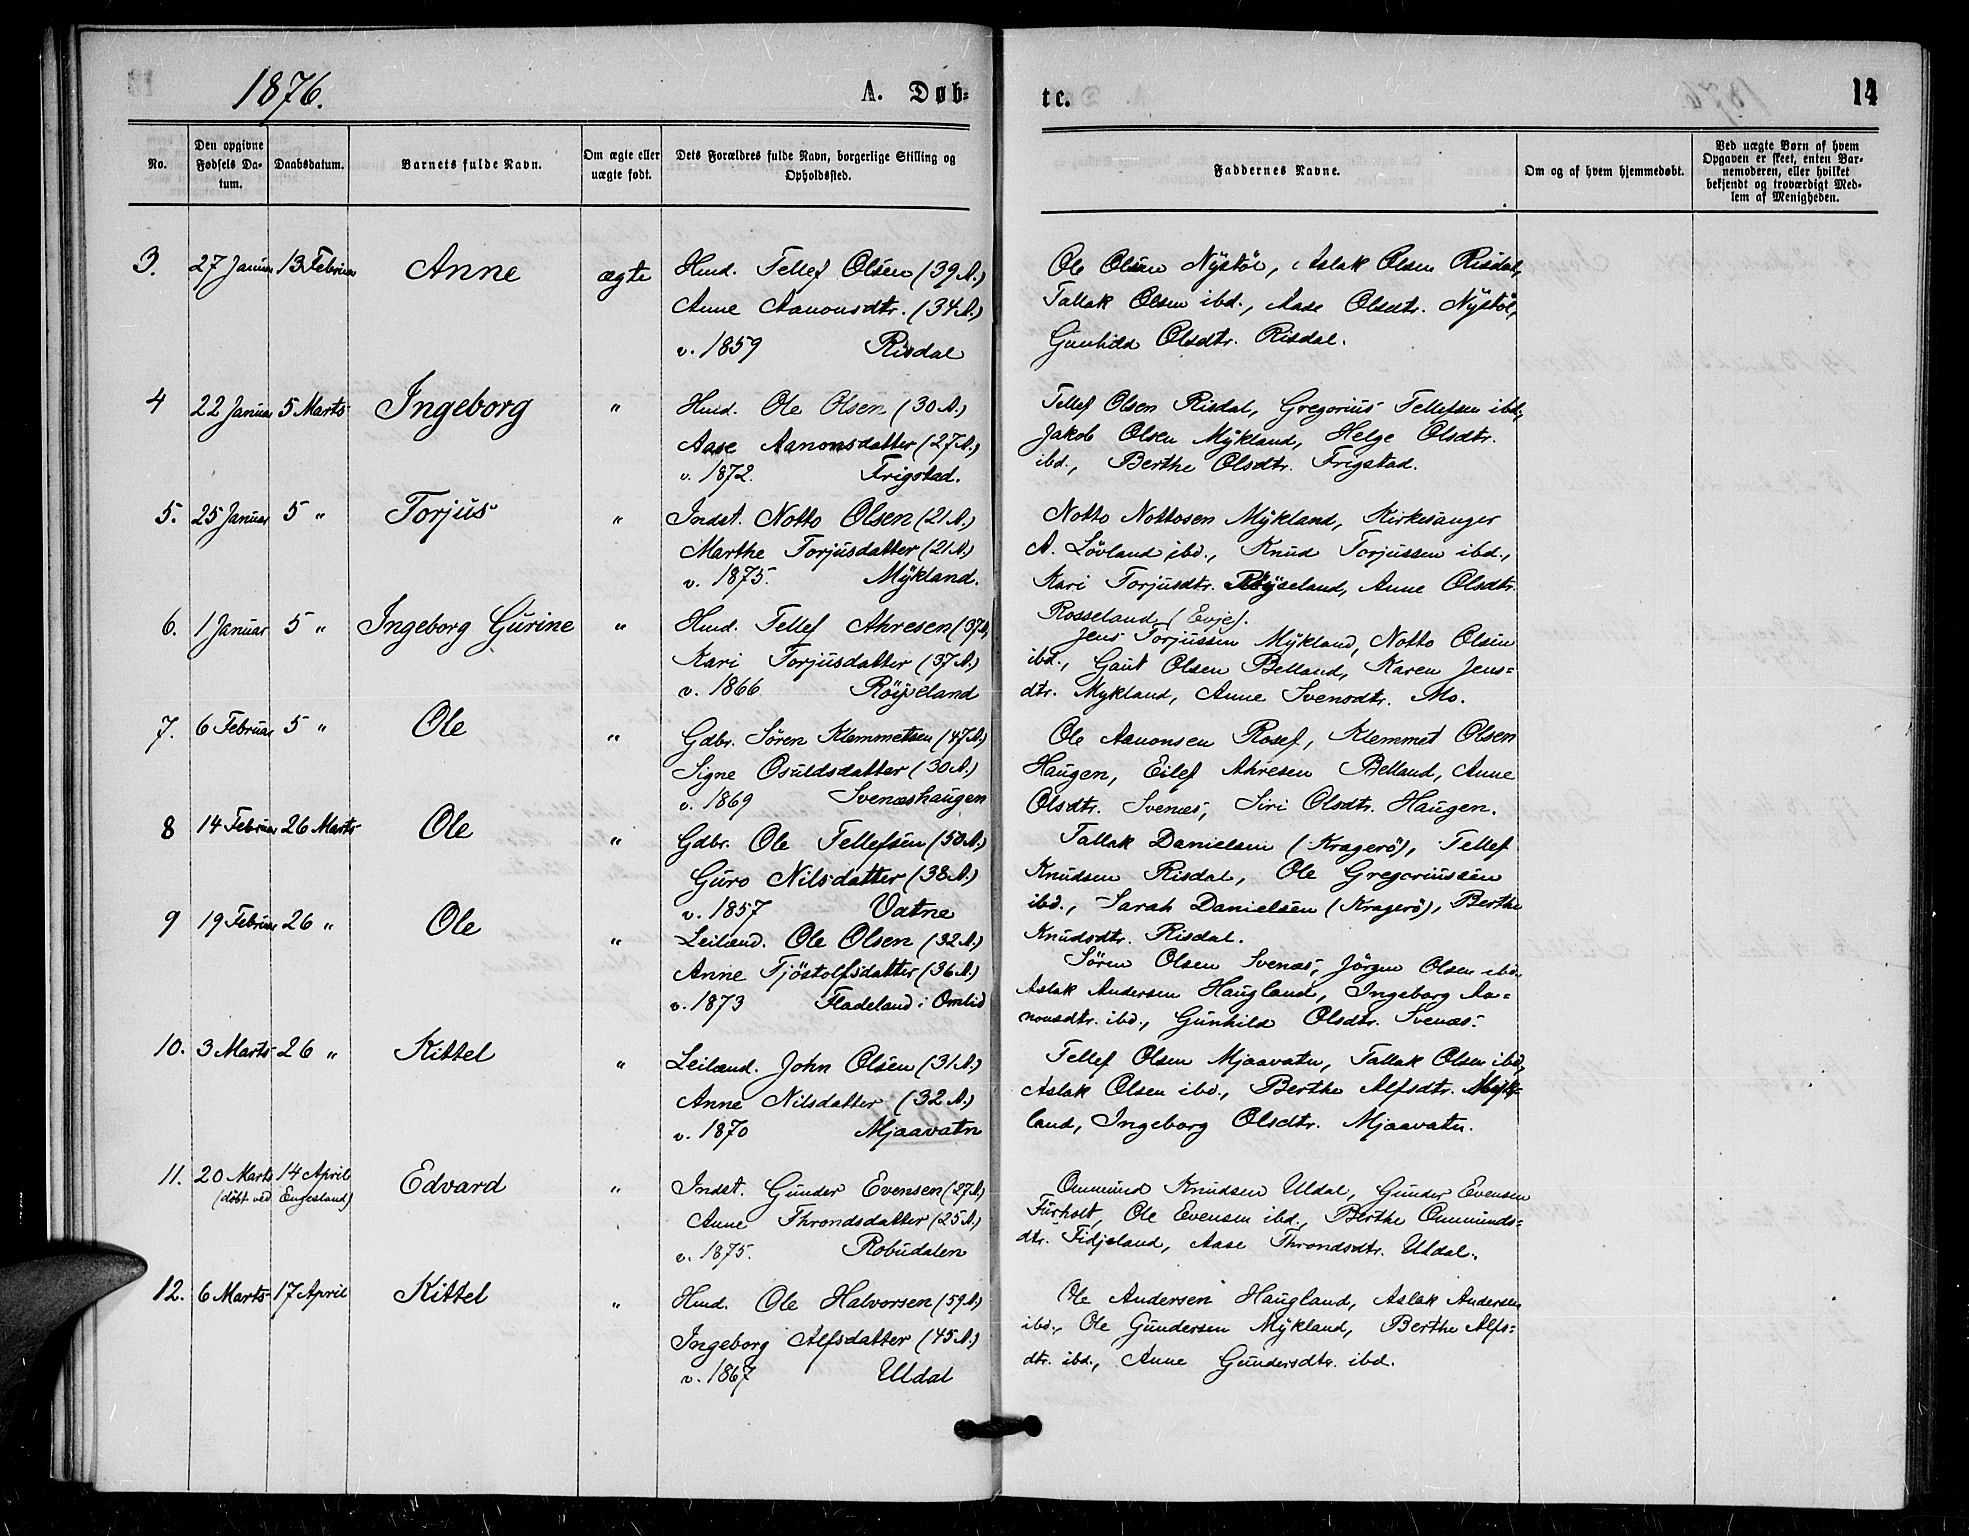 1876.
A. Døb=
te.
14
No.
Den opgivne Fødsels Da-tum.
Daabsdatum.
Barnets fulde Navn.
Om ægte eller uægte født.
Dets Forældres fulde Navn, borgerlige Stilling og Opholdssted.
Faddernes Navne.
Om og af hvem hjemmedøbt.
Ved uægte Børn af hvem Opgaven er skeet, enten Bar-nemoderen, eller hvilket bekjendt og troværdigt Med-lem af Menigheden.
3. 27 Januar 13 Februar Anne ægte Hmd. Tellef Olsen (39 A.)
Anne Aanonsdtr. (34 A.)
v. 1859 Risdal
Ole Olsen Nÿstöl, Aslak Olsen Risdal,
Tallak Olsen ibd., Aase Olsdtr. Nÿstöl,
Gunhild Olsdtr. Risdal.
4 22 Januar 5 Marts Ingeborg " Hmd. Ole Olsen (30 A.)
Aase Aanonsdatter (27 A.)
v. 1872. Frigstad.
Tellef Olsen Risdal, Gregorius Tellefsen ibd.,
Jakob Olsen Mÿkland, Helge Olsdtr.
ibd., Berthe Olsdtr. Frigstad.
5. 25 Januar 5 " Torjus " Indst. Notto Olsen (21 A.)
Marthe Torjusdatter (21 A.)
v. 1875. Mÿkland.
Notto Nottosen Mÿkland, Kirkesanger
A. Lövland ibd., Knud Torjussen ibd.,
Kari Torjusdtr. Röyseland, Anne Olsdtr.
Rosseland (Evje).
6. 1 Januar 5 " Ingeborg Gurine " Hmd. Tellef Ahresen (37 A.)
Kari Torjusdatter (37 A.)
v. 1866 Röyseland
Jens Torjussen Mÿkland, Notto Olsen
ibd., Gaut Olsen Belland, Karen Jens=
dtr. Mykland, Anne Svensdtr. Mo.
7. 6 Februar 5 " Ole " Gdbr. Sören Klemmetsen (47 A.)
Signe Osuldsdatter (30 A.)
v. 1869 Svenæshaugen
Ole Aanonsen Rosef, Klemmet Olsen
Haugen, Eilef Ahresen Belland, Anne
Olsdtr. Svenæs, Siri Olsdtr. Haugen.
8 14 Februar 26 Marts Ole " Gdbr. Ole Tellefsen (50 A.)
Guro Nilsdatter (38 A.)
v. 1857 Vatne
Tallak Danielsen (Kragerö), Tellef
Knudsen Risdal, Ole Gregoriussen
ibd., Sarah Danielsen (Kragerö), Berthe
Knudsdtr. Risdal.
9 19 Februar 26 " Ole " Leilænd. Ole Olsen (32 A.)
Anne Tjöstolfsdatter (36 A.)
v. 1873 Fladeland i Omlid
Sören Olsen Svenæs, Jörgen Olsen ibd.
Aslak Andersen Haugland, Ingeborg Aa=
nonsdtr. ibd., Gunhild Olsdtr. Svenæs.
10. 3 Marts 26 " Kittel " Leilænd. John Olsen (31 A.)
Anne Nilsdatter (32 A.)
v. 1870 Mjaavatn
Tellef Olsen Mjaavatn, Tallak Olsen ibd.,
Aslak Olsen ibd., Berthe Alfsdtr. Myk=
land, Ingeborg Olsdtr. Mjaavatn.
11. 20 Marts 14 April Edvard " Indst. Gunder Evensen (27 A.)
(döbt ved Engesland)
Anne Throndsdatter (25 A.)
v. 1875. Robudalen
Ommund Knudsen Uldal, Gunder Evensen
Furholt, Ole Evensen ibd., Berthe Ommunds=
dtr. Fidjeland, Aase Throndsdtr. Uldal.
12. 6 Marts 17 April Kittel " Hmd. Ole Halvorsen (59 A.)
Ingeborg Alfsdatter (45 A.)
v. 1867 Uldal
Ole Andersen Haugland, Aslak Andersen
ibd., Ole Gundersen Mÿkland, Berthe Alfs=
dtr. ibd., Anne Gundersdtr. ibd.